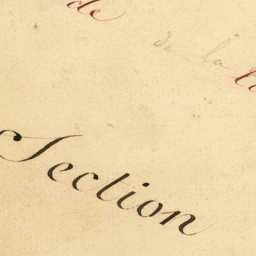 de
de la
Section